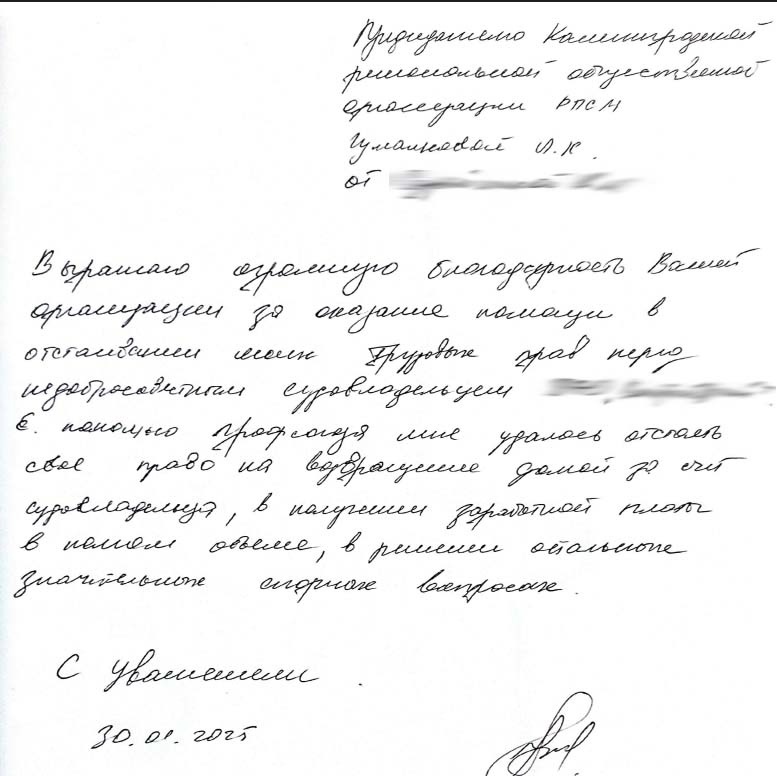 Председателю Калининградской
региональной общественной
организации РПСМ
Гумалюковой И.К.
от
Выражаю огромную благодарность Вашей
организации за оказание помощи в
отстаивании моих трудовых прав перед
недобросовестным судовладельцем
С помощью профсоюза мне удалось отстоять
свое право на возвращение домой за счет
судовладельца, в получении заработной платы
в полном объеме, в решении остальных
значительных спорных вопросах.
С уважением
30.01.2025